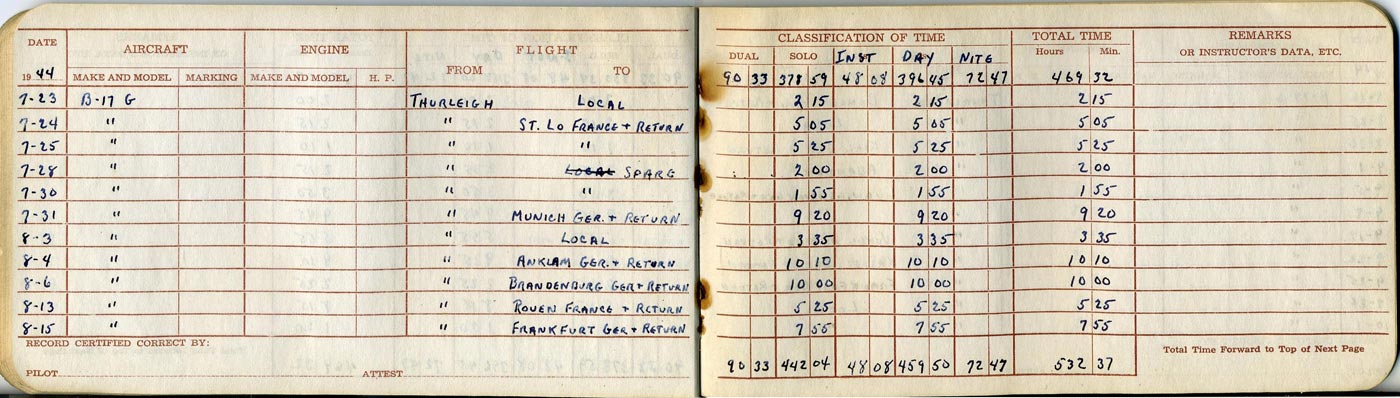 DATE AIRCRAFT ENGINE FLIGHT CLASSIFICATION OF TIME TOTAL TIME REMARKS
DUAL SOLO INST DAY NITE Hours Min. OR INSTRUCTOR'S DATA, ETC.
1944 MAKE AND MODEL MARKING MAKE AND MODEL H. P. FROM TO 90 33 378 59 48 08 396 45 72 47 469 32
7-23 B-17 G THURLEIGH LOCAL 2 15 2 15 2 15
7-24 " " ST. LO FRANCE + RETURN 5 05 5 05 5 05
7-25 " " " 5 25 5 25 5 25
7-28 " " LOCAL SPARE 2 00 2 00 2 00
7-30 " " " 1 55 1 55 1 55
7-31 " " MUNICH GER. + RETURN 9 20 9 20 9 20
8-3 " " LOCAL 3 35 3 35 3 35
8-4 " " ANKLAM GER. + RETURN 10 10 10 10 10 10
8-6 " " BRANDENBURG GER + RETURN 10 00 10 00 10 00
8-13 " " ROUEN FRANCE + RETURN 5 25 5 25 5 25
8-15 " " FRANKFURT GER + RETURN 7 55 7 55 7 55
RECORD CERTIFIED CORRECT BY: Total Time Forward to Top of Next Page
90 33 442 04 48 08 459 50 72 47 532 37
PILOT ATTEST